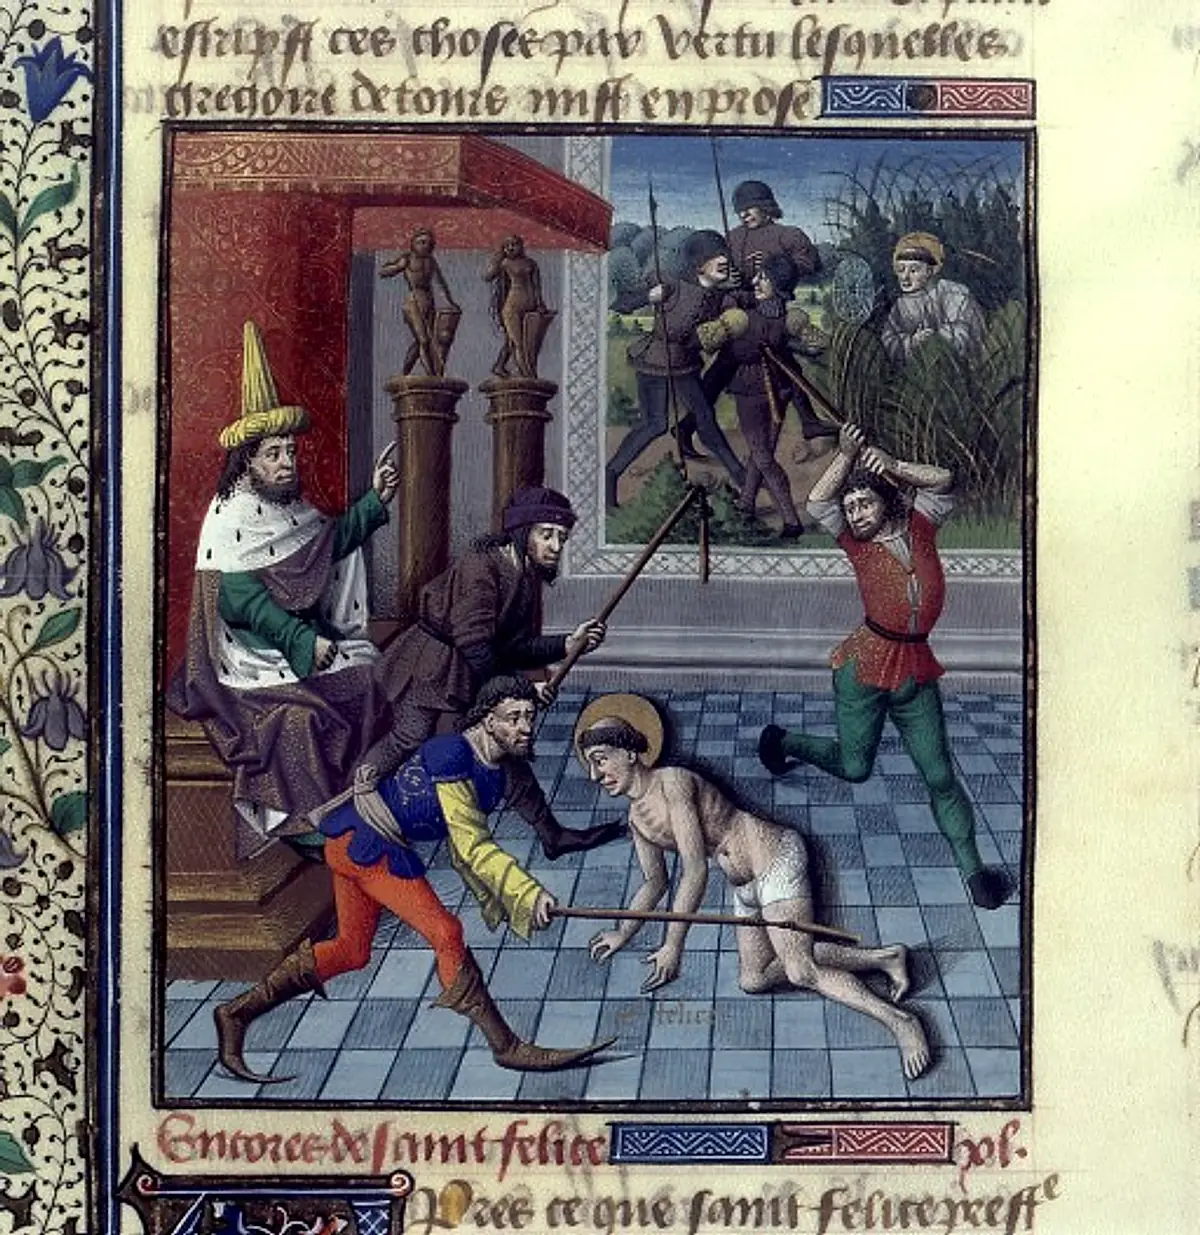 escript ces choses par vertu lesquelles
gregoire de tours mist en prose
felice
Encores de saint felice xl.
Pres ce que saint felice prestre